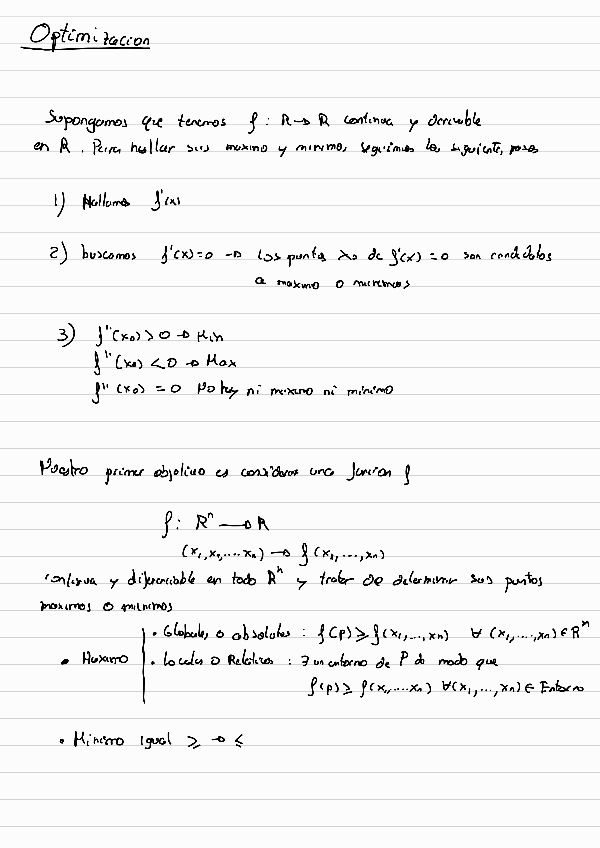 Optimizacion
Supongamos que tenemos f: R → R continua y derivable
en R. Para hallar sus maximo y minimo, seguimos los siguientes pasos
1) Hallamos f'(x)
2) buscamos f'(x)=0 → Los puntos x₀ de f'(x)=0 son candidatos
a maximo o minimos
3) f''(x₀)>0 → Min
f''(x₀)<0 → Max
f''(x₀)=0 No hay ni maximo ni minimo
Nuestro primer objetivo es considerar una funcion f
f: Rⁿ → R
(x₁,x₂,...xₙ) → f(x₁,...,xₙ)
continua y diferenciable en todo Rⁿ y tratar de determinar sus puntos
maximos o minimos
• Globales o absolutos : f(p) ≥ f(x₁,...,xₙ) ∀ (x₁,...,xₙ) ∈ Rⁿ
• Maximo • Locales o Relativos : ∃ un entorno de P de modo que
f(p) ≥ f(x₁,...xₙ) ∀(x₁,...,xₙ) ∈ Entorno
• Minimo igual ≥ → ≤